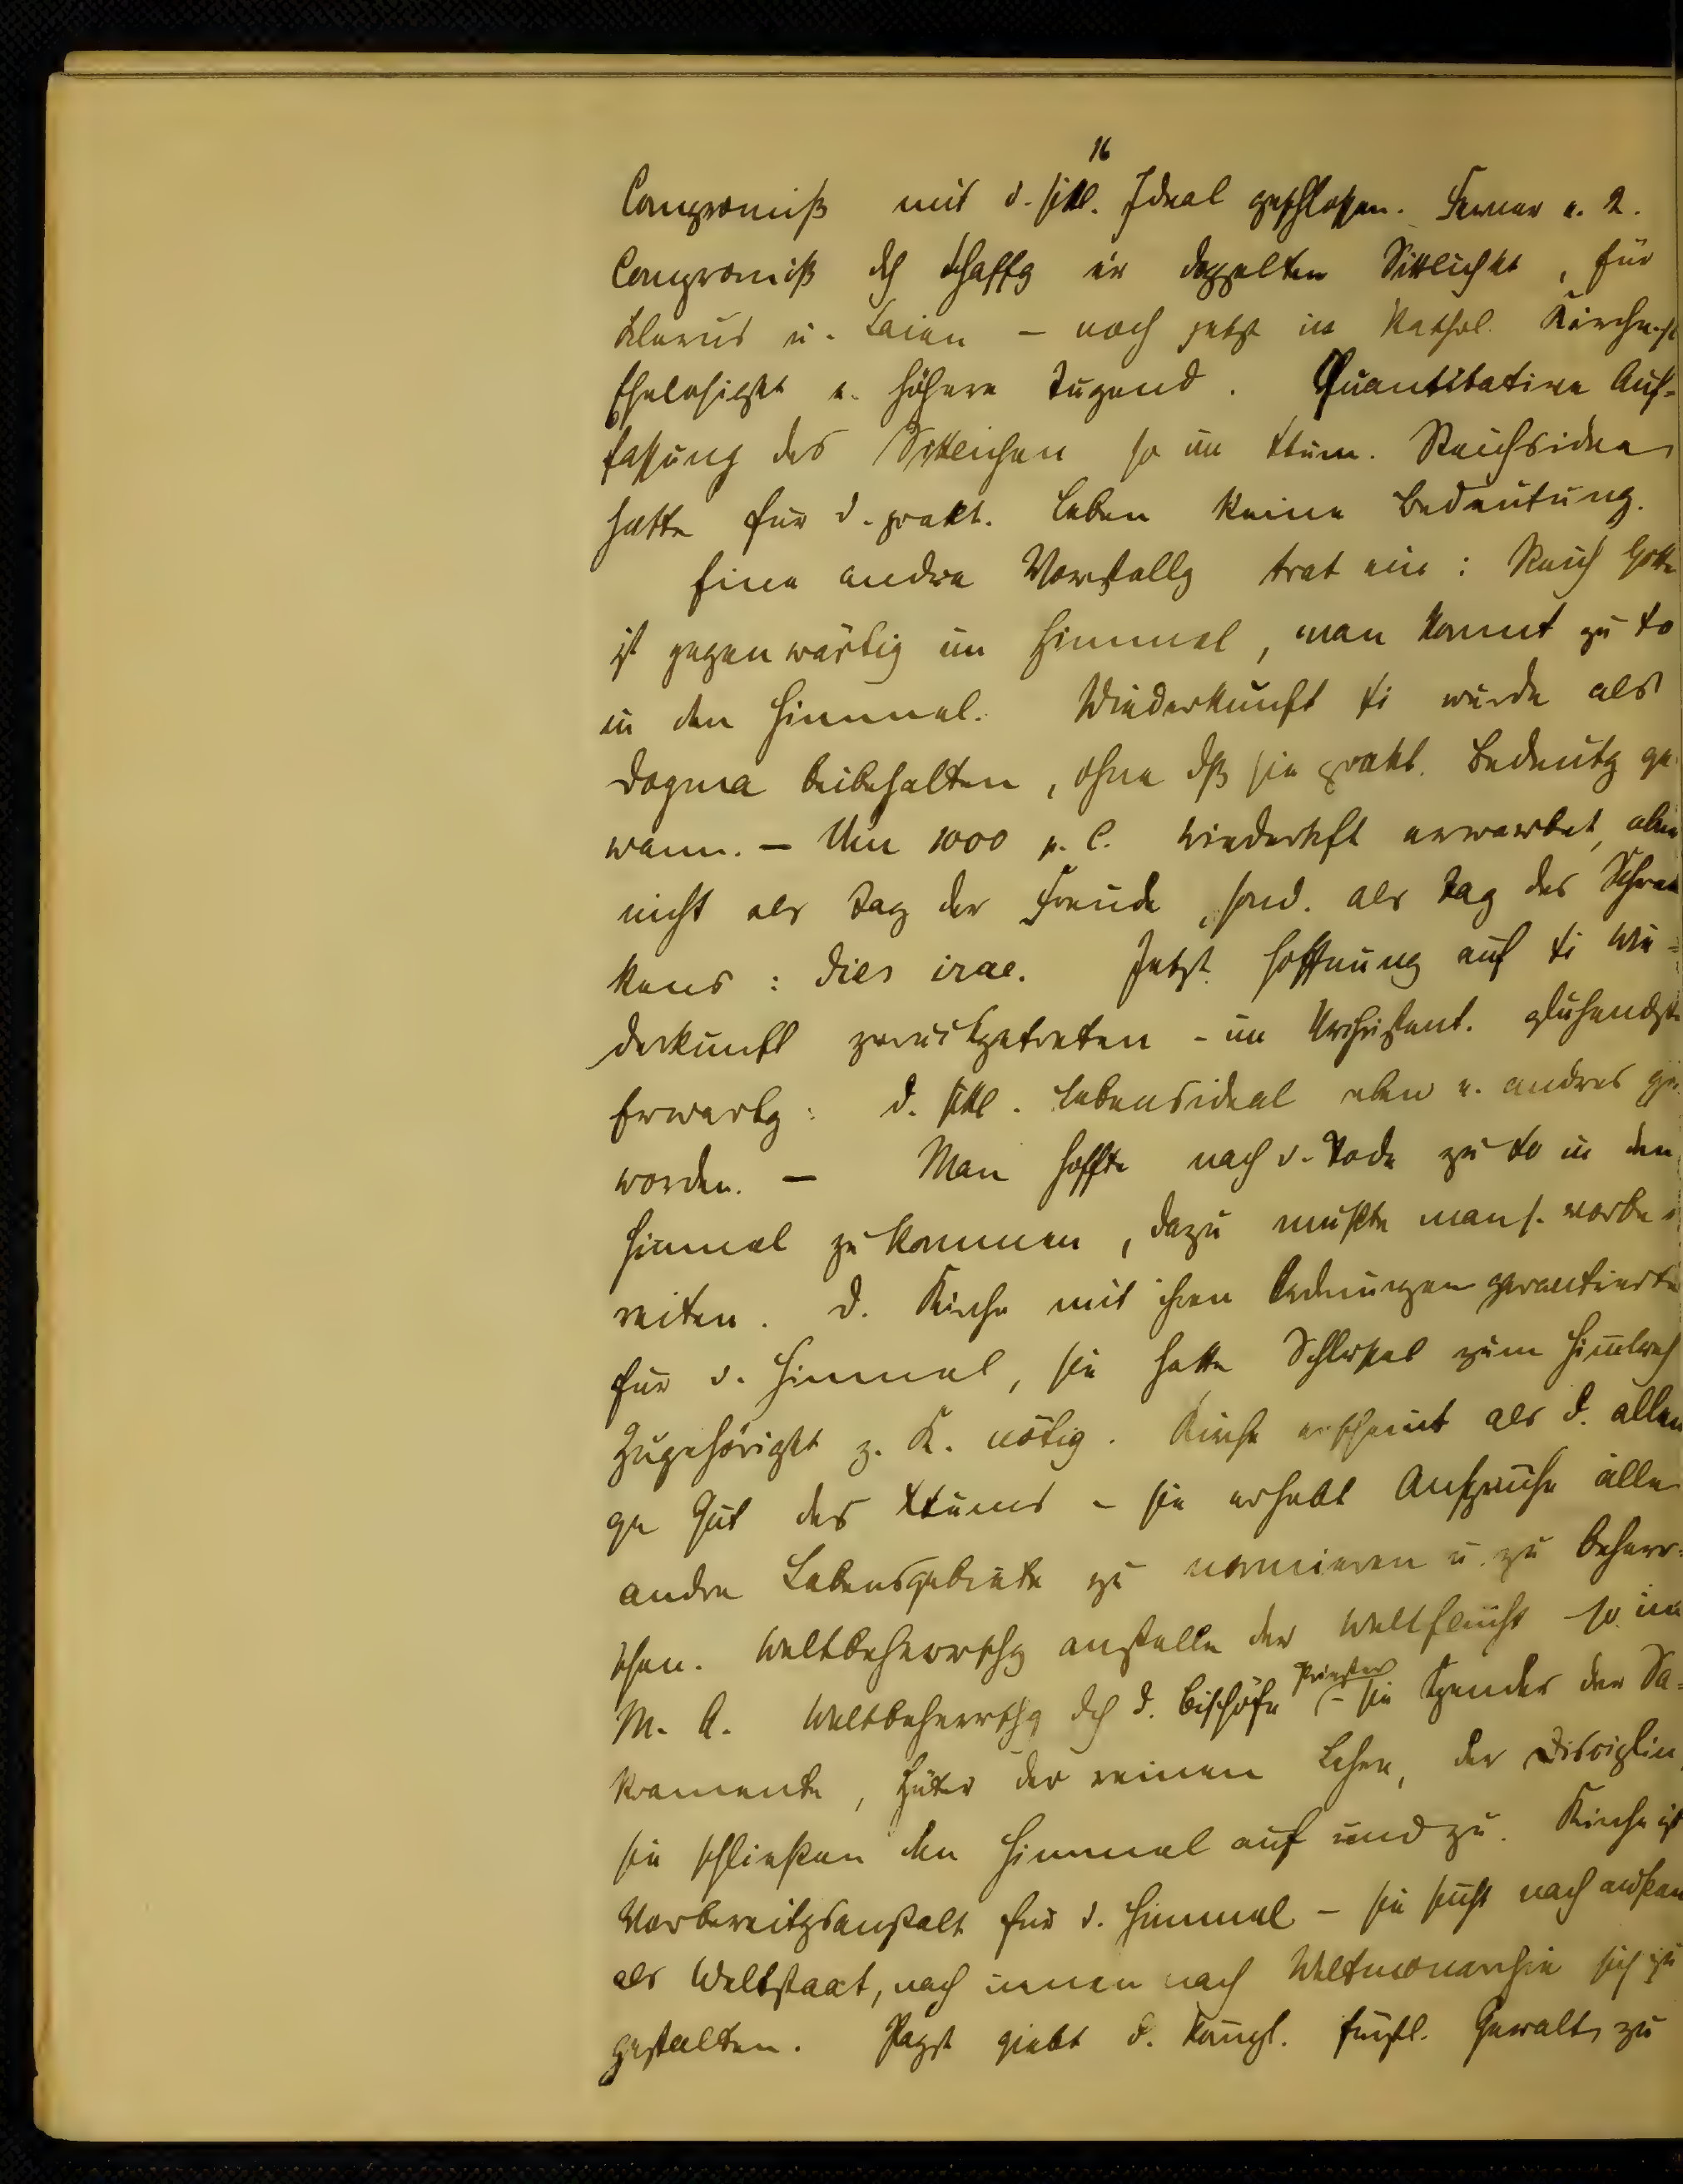 16
Compromiß mit d. sittl. Ideal geschlossen. Ferner e. 2.
Compromiß dch Schaffg er doppelten Sittlichkt, für
Klerus u. Laien – noch jetzt in kathol. Kirche ist
Ehelosigkt e. höhere Tugend. Quantitative Auf-
fassung des Sittlichen so im Xtum. Reichsidee
hatte für d. prakt. Leben keine Bedeutung.
Eine andre Vorstellg trat ein: Reich Gottes
ist gegenwärtig im Himmel, man kommt zu Xo
in den Himmel. Wiederkunft Xi wurde als
Dogma beibehalten, ohne dß sie prakt. Bedeutg ge
wann. – Um 1000 p. C. Wiederkft erwartet, aber
nicht als Tag der Freude, sond. als Tag des Schrek
kens: dies irae. Jetzt Hoffnung auf Xi Wie-
derkunft zurückgetreten – im Urchristent. glühendste
Erwartg: d. sittl. Lebensideal eben e. andres ge
worden. – Man hoffte nach d. Tode zu Xo in den
Himmel zu kommen, dazu mußte man s. vorbe
reiten. D. Kirche mit ihren Ordnungen garantierte
für d. Himmel, sie hatte Schlüssel zum
Zugehörigkt z. K. nötig. Kirche erscheint als d. allei
ge Gut des Xtums – sie erhebt Ansprüche alle
andre Lebensgebiete zu normieren u. zu beherr-
schen. Weltbeherrschg anstelle der Weltflucht so im
M. A. Weltbeherrschg dch d. Bischöfe Priester – sie Spender der Sa-
kramente, Hüter der reinen Lehre, der Disciplin,
sie schließen den Himmel auf und zu. Kirche ist
Vorbereitgsanstalt für d. Himmel – sie sucht nach außen
als Weltstaat, nach innen nach Weltmonarchie sich zu
gestalten. Papst giebt d. fürstl. Gewalt zu